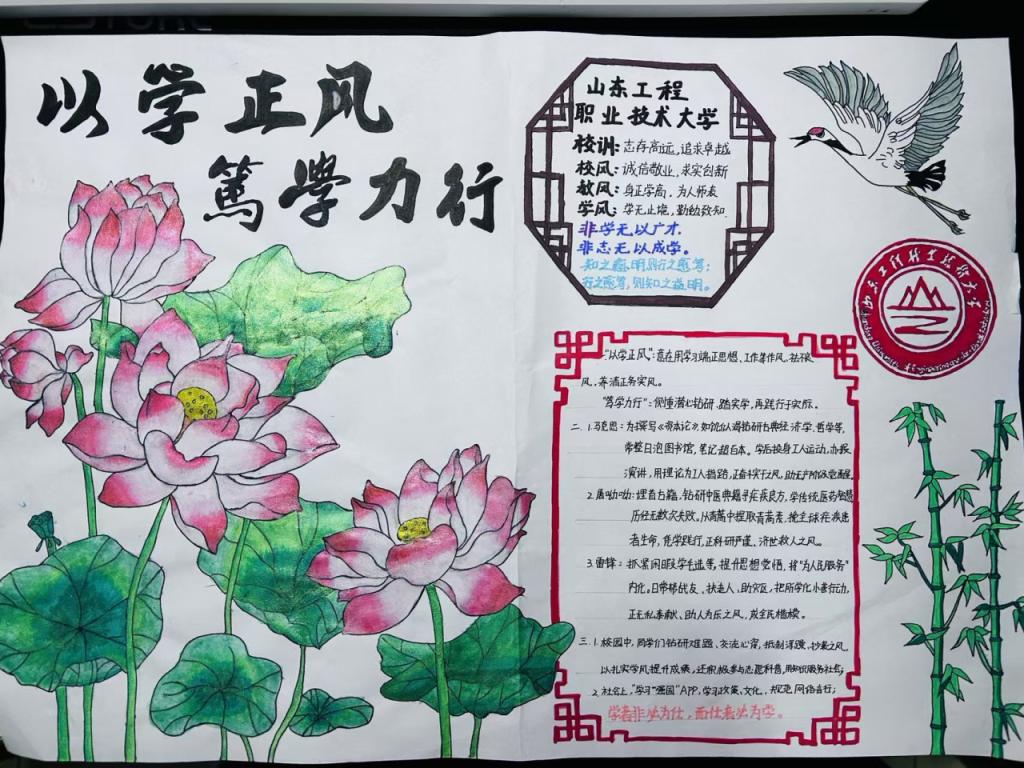 以学正风
篤學力行
山东工程
职业技术大学
校训:志存高远,追求卓越
校风:诚信敬业,求实创新
教风:身正学高,为人师表
学风:学无止境,勤勉致知.
非学无以广才.
非志无以成学。
知之愈明,则行之愈笃;
行之愈笃,则知之益明。
山东工程职业技术大学
一."以学正风":意在用学习端正思想、工作等作风,祛不良
风,养清正务实风。
"笃学力行":侧重潜心钻研、踏实学,再践行于实际。
二、1.马克思:为撰写《资本论》,如饥似渴钻研古典经济学、哲学等,
常整日泡图书馆,笔记超百本。学后投身工人运动,办报、
演讲,用理论为工人指路,正奋斗实干之风,助无产阶级觉醒
2.屠呦呦:埋首古籍,钻研中医典籍寻疟疾良方,学传统医药智慧
历经无数次失败。从青蒿中提取青蒿素,挽全球疟疾患
者生命,凭学践行,正科研严谨、济世救人之风。
3.雷锋:抓紧闲暇学毛选等,提升思想觉悟,将"为人民服务"
内化,日常帮战友、扶老人、助灾区,把所学化小善行动,
正无私奉献、助人为乐之风,成全民楷模。
三、1.校园中,同学们钻研难题,交流心得,抵制浮躁、抄袭之风,
以扎实学风提升成绩,还积极参与志愿科普,用知识服务社会;
2.社会上,"学习"强国"APP,学习政策、文化,规范网络言行;
学者非必为仕,而仕者必为学。